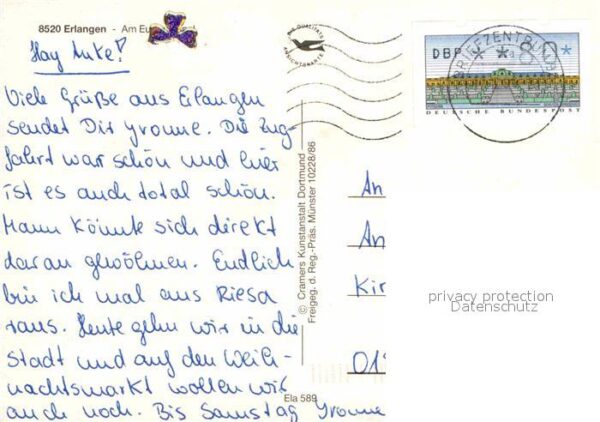 8520 Erlangen - Am Eu
Hay Anke!
Viele Grüße aus Erlangen
sendet Dir Yvonne. Die Zug-
fahrt war schön und hier
ist es auch total schön.
Mann könnte sich direkt
daran gewöhnen. Endlich
bin ich mal aus Riesa
raus. Heute gehn wir in die
Stadt und auf den Weih-
nachtsmarkt wollen wir
auch noch. Bis Samstag Yvonne
© Cramers Kunstanstalt Dortmund
Freigeg. d. Reg.-Präs. Münster 10228/86
Ela 589
DBP * * 80 *
BRIEFZENTRUM
DEUTSCHE BUNDESPOST
An
An
Kir
01
privacy protection
Datenschutz